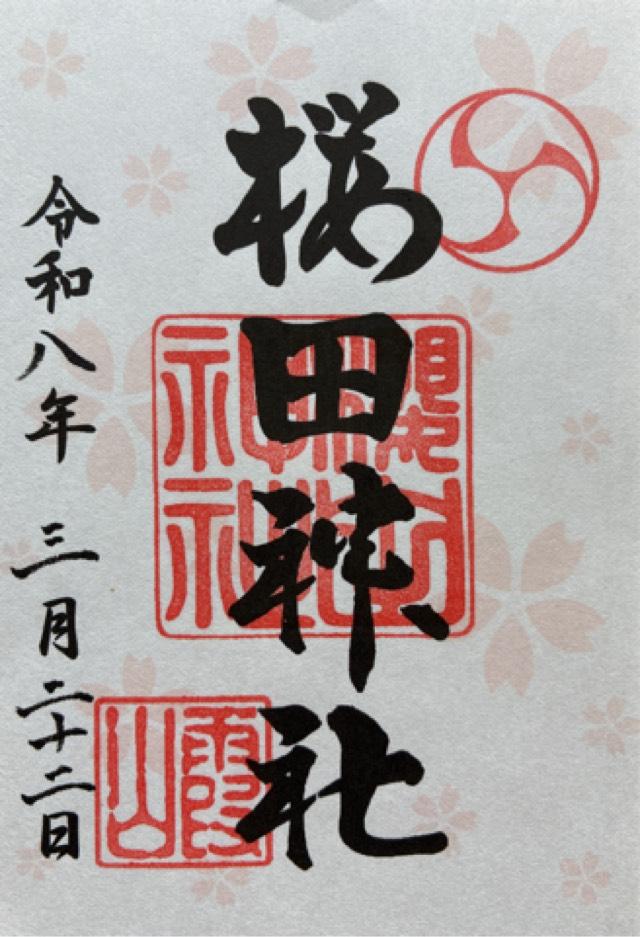 桜田神社
令和八年 三月二十二日
霞山